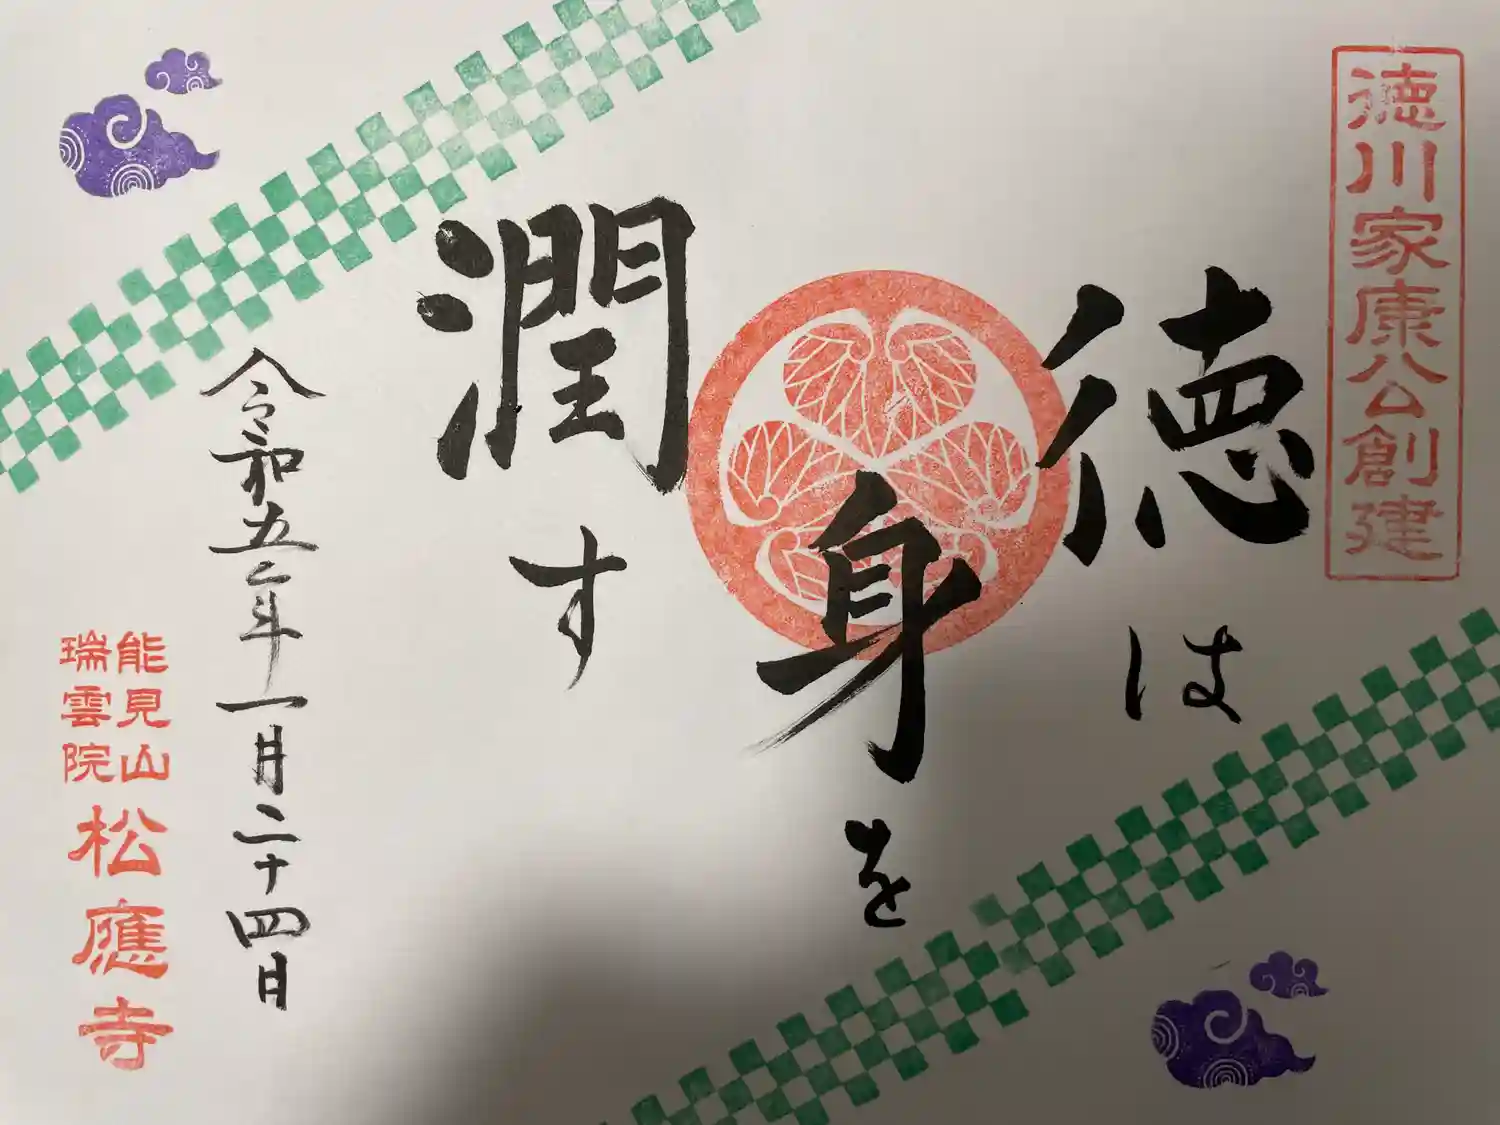 徳川家康公創建
徳は
身を
潤す
令和五年一月二十四日
能見山
瑞雲院
松應寺